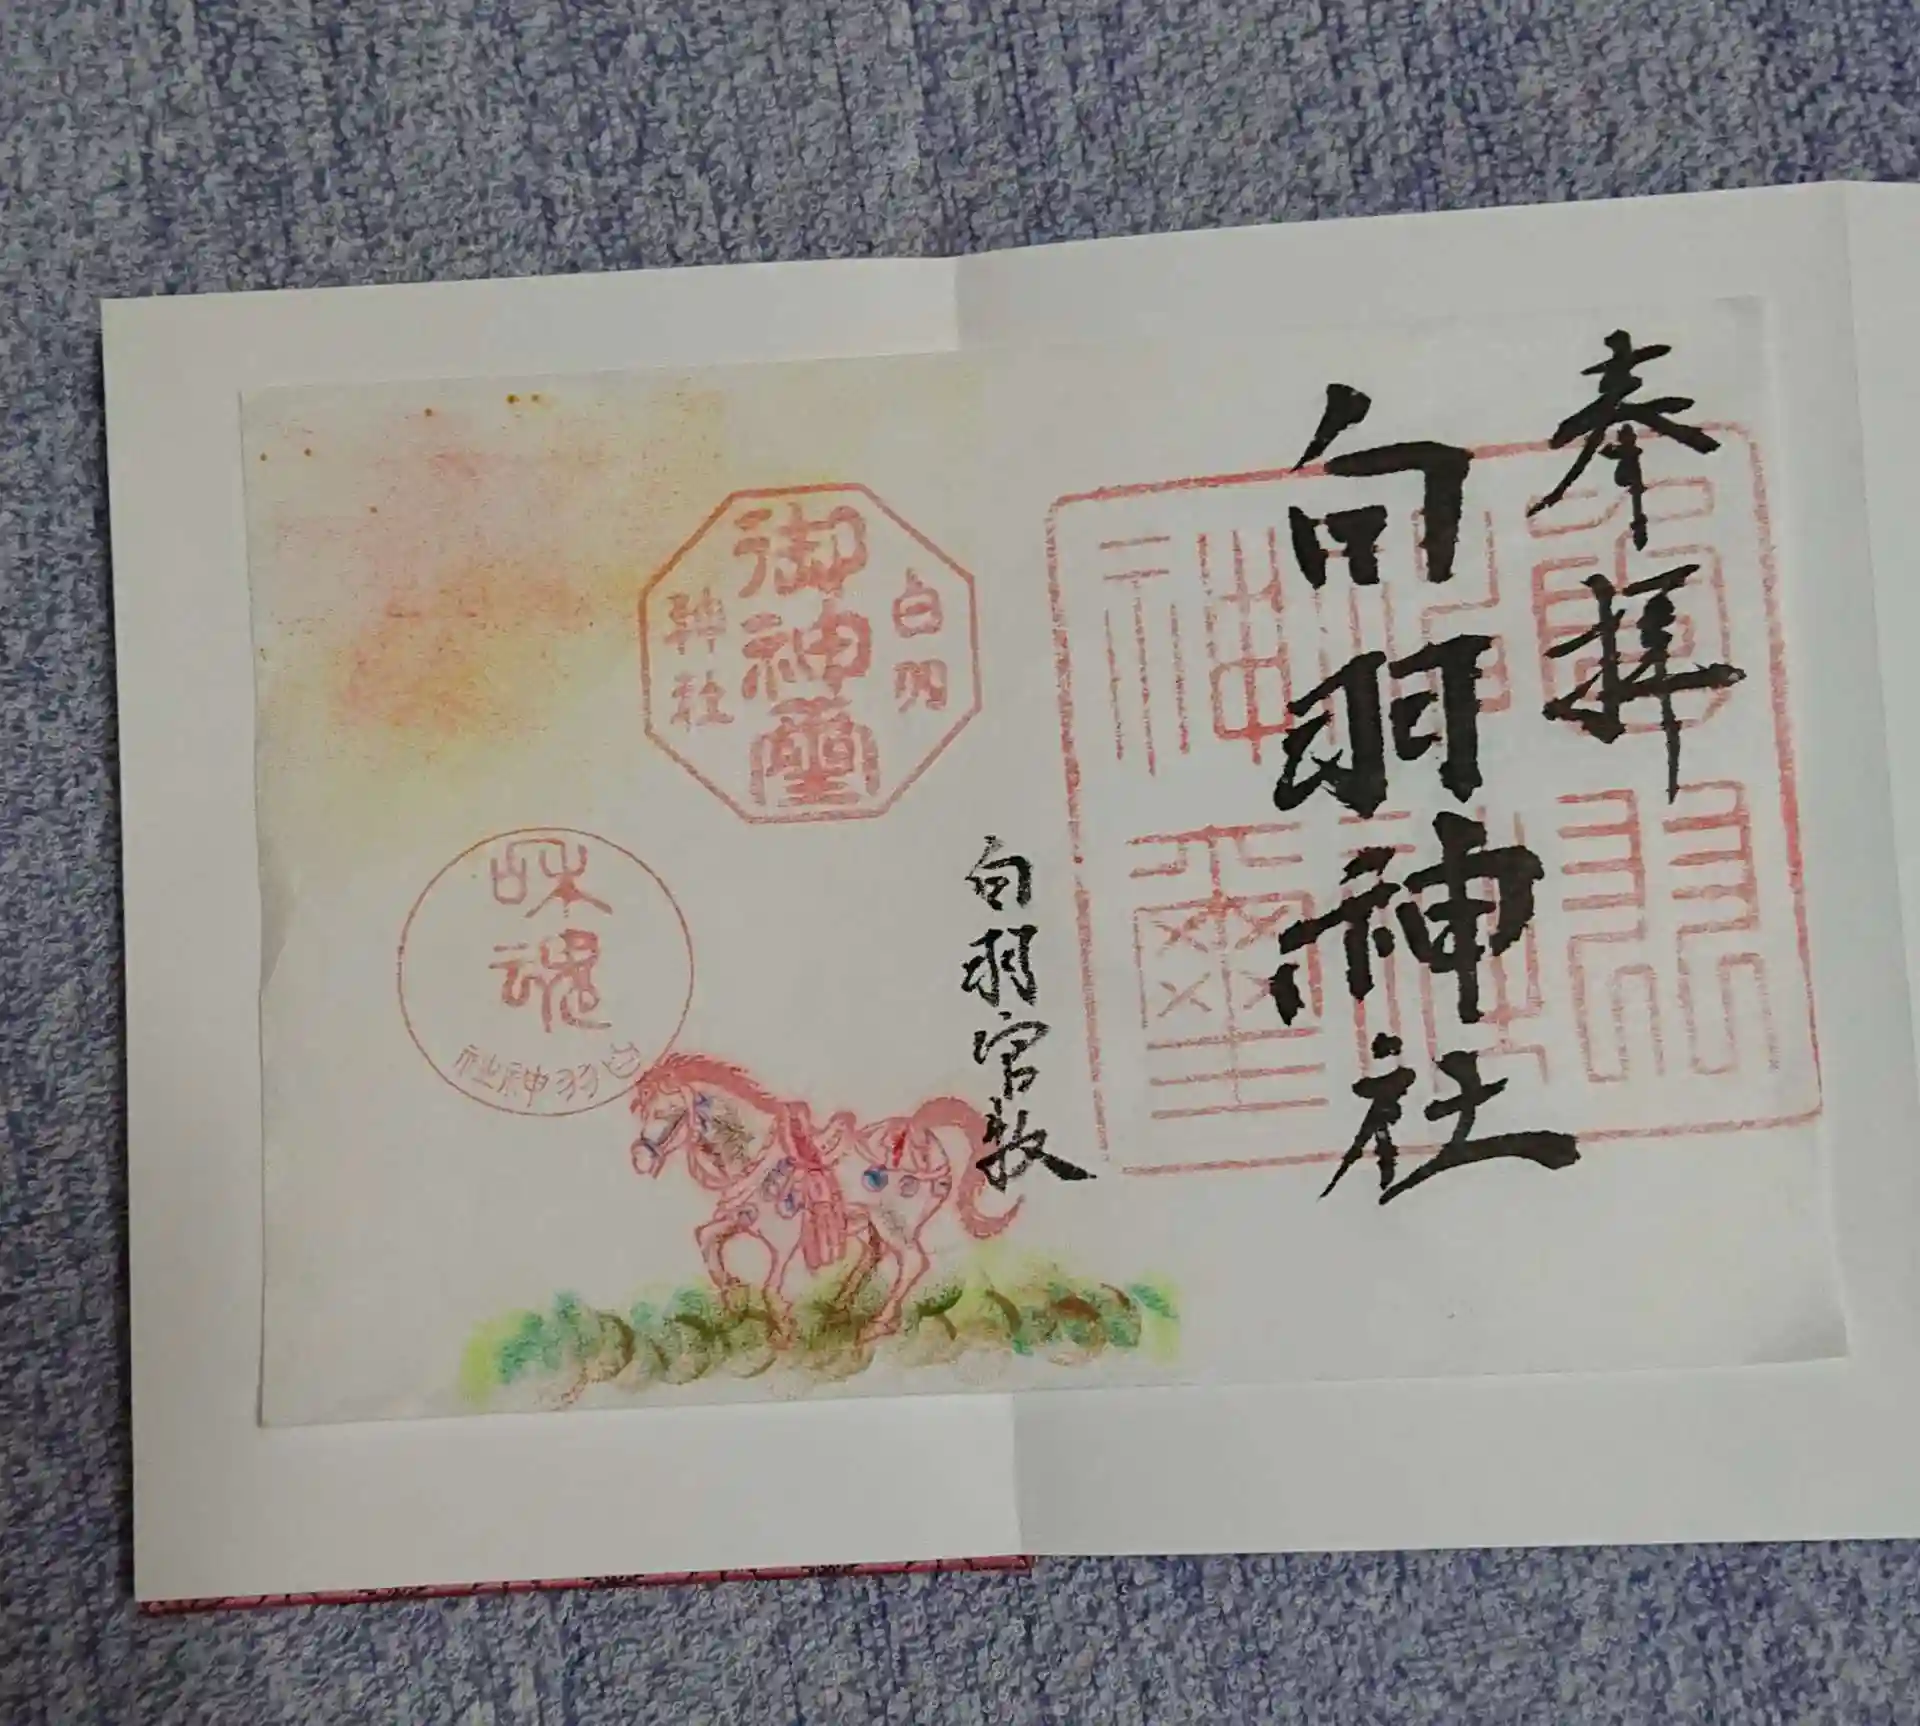 奉拝
白羽神社
白羽神社神璽
白羽官牧
白羽
御神璽
神社
咊魂
白羽神社